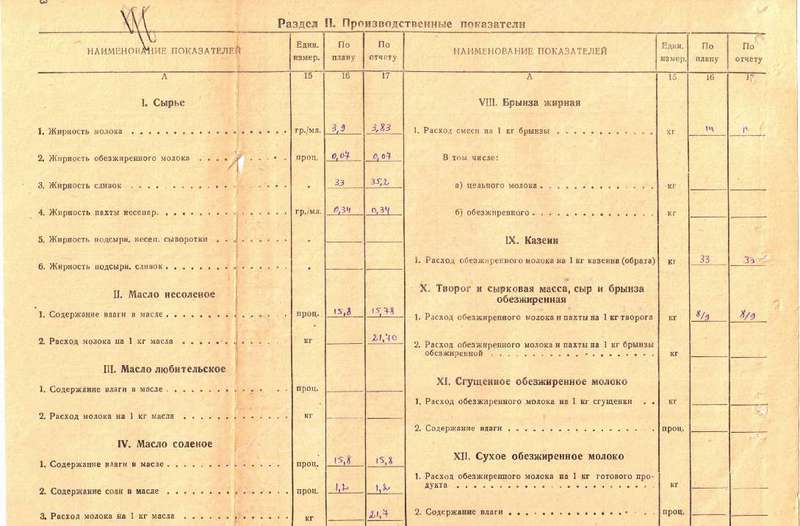 Раздел II. Производственные показатели
НАИМЕНОВАНИЕ ПОКАЗАТЕЛЕЙ
Един. измер.
По плану
По отчету
А
15
16
17
I. Сырье
1. Жирность молока гр./мл. 3,9 3,83
2. Жирность обезжиренного молока проц. 0,07 0,07
3. Жирность сливок " 33 35,2
4. Жирность пахты несепар. гр./мл. 0,34 0,34
5. Жирность подсырн. несеп. сыворотки "
6. Жирность подсырн. сливок "
II. Масло несоленое
1. Содержание влаги в масле проц. 15,8 15,78
2. Расход молока на 1 кг масла кг 21,70
III. Масло любительское
1. Содержание влаги в масле проц.
2. Расход молока на 1 кг масла кг
IV. Масло соленое
1. Содержание влаги в масле проц. 15,8 15,8
2. Содержание соли в масле проц. 1,2 1,2
3. Расход молока на 1 кг масла кг 21,7
НАИМЕНОВАНИЕ ПОКАЗАТЕЛЕЙ
Един. измер.
По плану
По отчету
А
15
16
17
VIII. Брынза жирная
1. Расход смеси на 1 кг брынзы кг
В том числе:
а) цельного молока кг
б) обезжиренного кг
IX. Казеин
1. Расход обезжиренного молока на 1 кг казеина (обрата) кг 33 33
X. Творог и сырковая масса, сыр и брынза
обезжиренная
1. Расход обезжиренного молока и пахты на 1 кг творога кг 8/9 8/9
2. Расход обезжиренного молока и пахты на 1 кг брынзы
обезжиренной кг
XI. Сгущенное обезжиренное молоко
1. Расход обезжиренного молока на 1 кг сгущенки кг
2. Содержание влаги проц.
XII. Сухое обезжиренное молоко
1. Расход обезжиренного молока на 1 кг готового про-
дукта кг
2. Содержание влаги проц.